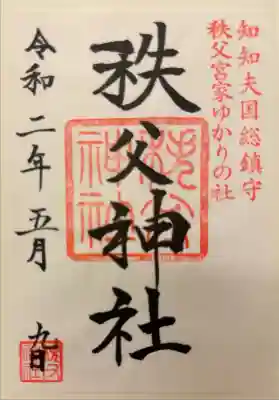 知知夫国総鎮守
秩父宮家ゆかりの社
秩父神社
令和二年五月九日